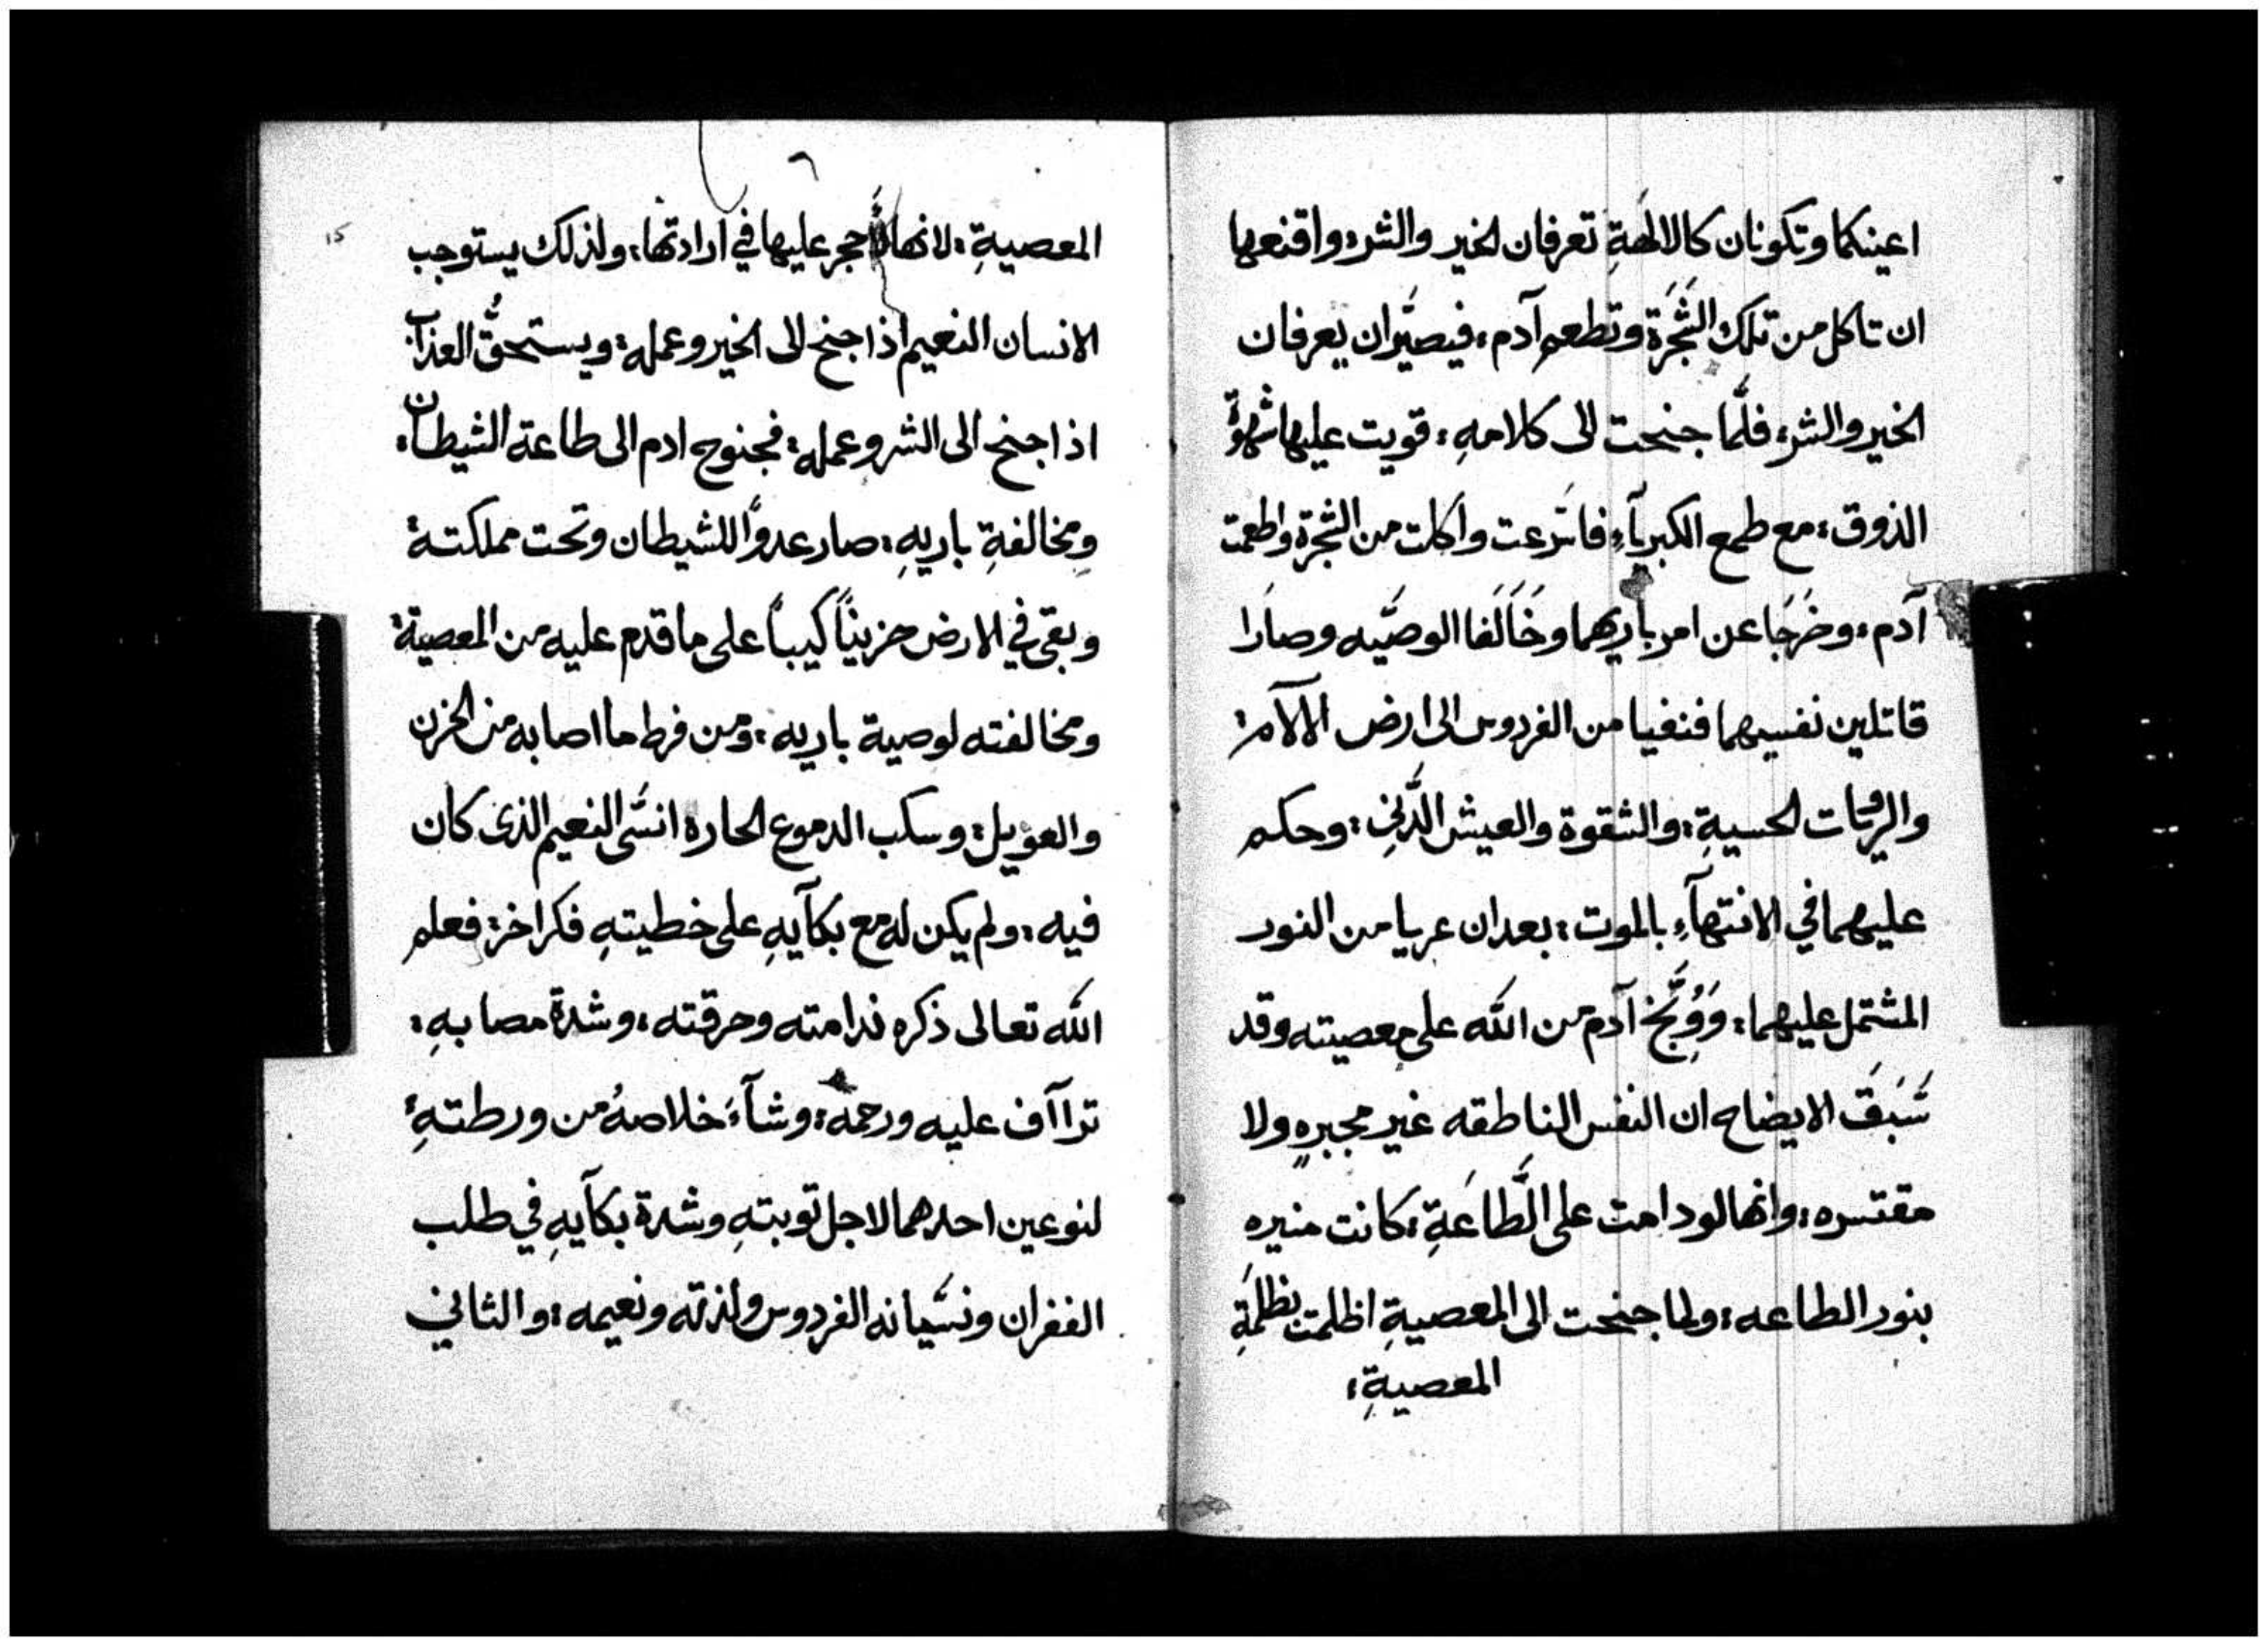 اعينكما وتكونان كالالهةِ تعرفان الخير والشر؛ واقنعها
ان تاكل من تلك الشَّجَرَة وتطعم آدم؛ فيصيَّران يعرفان
الخير والشر؛ فلَّما جنحت الى كلامهِ؛ قويت عليها شهوةُ
الذوق؛ مع طمع الكبرياَّءِ فاسَرعت واكلت من الشجرة واطعمت
آدم؛ وخرَجَا عن امر باريهما وخَاَلَفا الوصَّيه وصاَرا
قاتلين نفسيهما فنفيا من الفردوس الى ارض الآلام؛
والرجات الحسيةِ؛ والشقوة والعيش الدَّني؛ وحكم
عليهما في الانتهآءِ بالموت؛ بعد ان عريا من النور
المشتمل عليهما؛ وَوُبِّخ آدم من الله على معصيته وقد
سَبَقَ الايضاح ان النفس الناطقه غير مجبرهٍ ولا
مقتسره؛ وانها لو دامت على الطَّاعَةِ؛ كانت منيره
بنور الطاعه؛ ولما جنحت الى المعصيةِ اظلمت بظلمَةِ
المعصيةِ؛
15
المعصيةِ؛ لانها حجر عليها في ارادتها؛ ولذلك يستوجب
الانسان النعيم اذا جنح الى الخير وعمله؛ ويستحقُّ العذاب
اذا جنح الى الشر وعمله؛ فجنوح ادم الى طاعة الشيطان؛
ومخالفةِ باريهِ؛ صار عدوًّا للشيطان وتحت مملكتهِ
وبقى في الارض حزيناً كيباً على ما قدم عليه من المعصية؛
ومخالفته لوصية باريه؛ ومن فرط ما اصابه من الحزن
والعويل؛ وسكب الدموع الحاره انسَّى النعيم الذى كان
فيه؛ ولم يكن له مع بكآيهِ على خطيتهِ فكر اخر؛ فعلم
الله تعالى ذكره ندامته وحرقته؛ وشدة مصابهِ؛
تراآف عليه ورحمه؛ وشآءَ خلاصهُ من ورطتهِ؛
لنوعين احدهما لاجل توبتهِ وشدة بكآيهِ في طلب
الغفران ونسَيانه الفردوس ولذته ونعيمه؛ والثاني